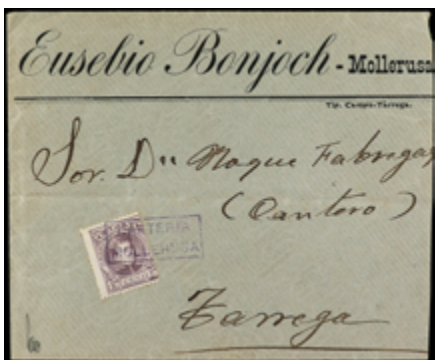 Eusebio Bonjoch - Mollerusa
Tip. Camps-Tàrrega.
Sor. Dn Roque Fabregas
(Cantero)
CARTERIA
MOLLERUSA
Tarrega